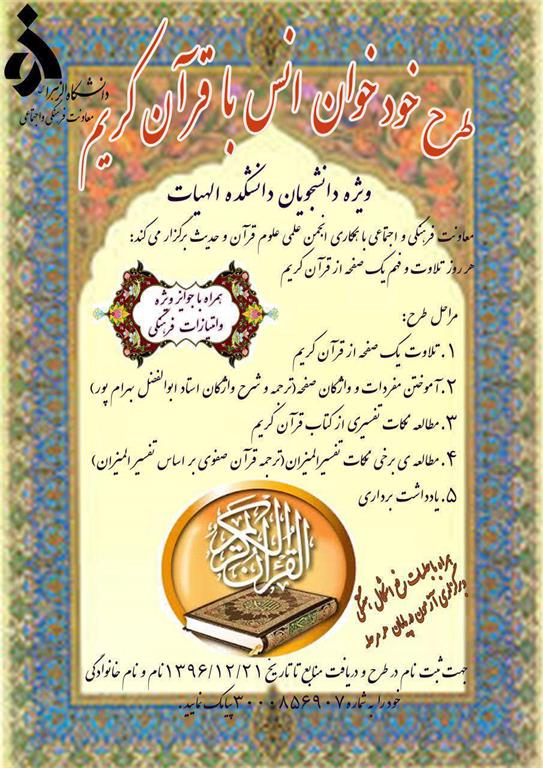 دانشگاه الزهرا
معاونت فرهنگی و اجتماعی
طرح خودخوان انس با قرآن کریم
ویژه دانشجویان دانشکده الهیات
معاونت فرهنگی و اجتماعی با همکاری انجمن علمی علوم قرآن و حدیث برگزار می کند:
هر روز تلاوت و فهم یک صفحه از قرآن کریم
همراه با جوایز ویژه
و امتیازات فرهنگی
مراحل طرح:
۱. تلاوت یک صفحه از قرآن کریم
۲. آموختن مفردات و واژگان صفحه(ترجمه و شرح واژگان استاد ابوالفضل بهرام پور)
۳. مطالعه نکات تفسیری از کتاب قرآن کریم
۴. مطالعه ی برخی نکات تفسیرالمیزان(ترجمه قرآن صفوی بر اساس تفسیرالمیزان)
۵. یادداشت برداری
القرآن الكريم
همراه با جلسات رفع اشکال هفتگی
و برگزاری آزمون در پایان هر مرحله
جهت ثبت نام در طرح و دریافت منابع تا تاریخ ۱۳۹۶/۱۲/۲۱ نام و نام خانوادگی
خود را به شماره ۳۰۰۰۸۵۶۹۰۷ پیامک نمایید.